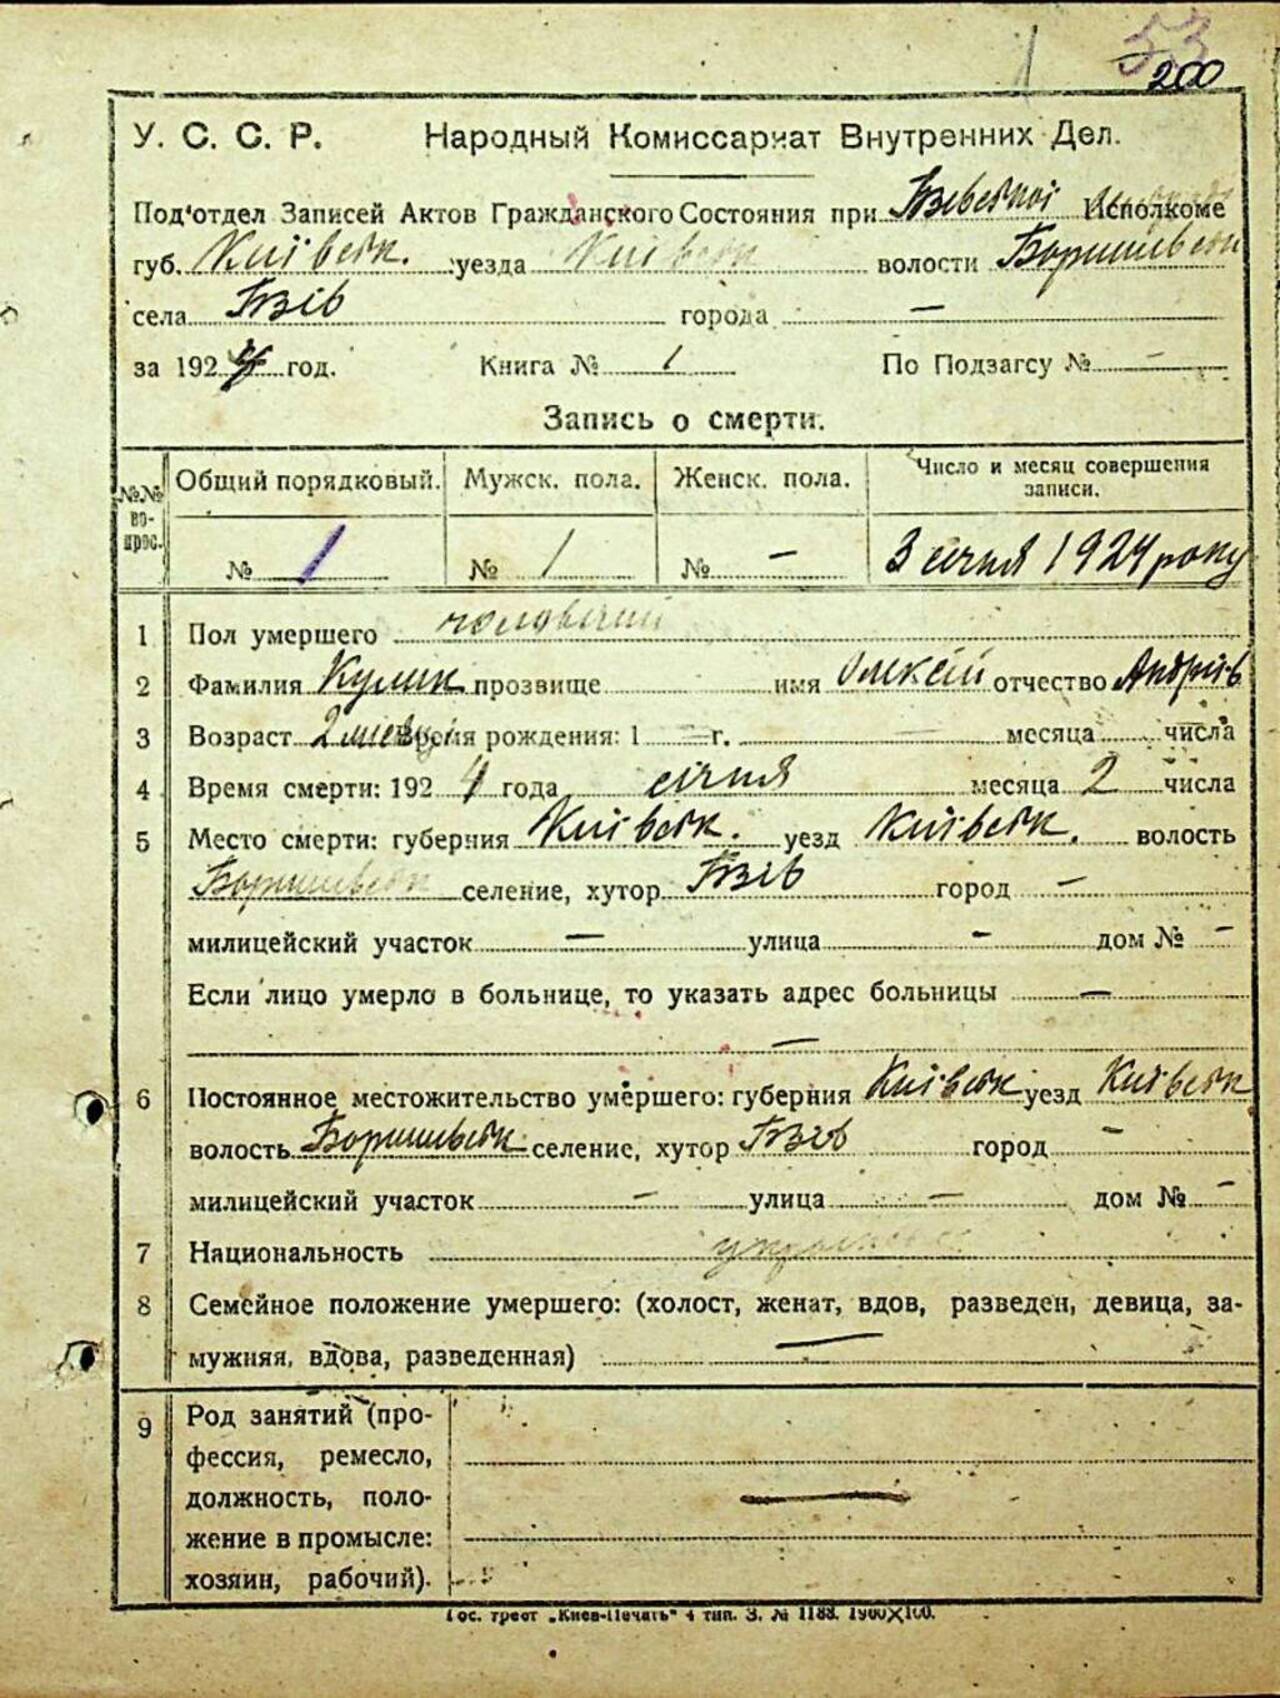 53
200
У. С. С. Р. Народный Комиссариат Внутренних Дел.
Под'отдел Записей Актов Гражданского Состояния при Бзівській Исполкоме
губ. Київськ. уезда Київськ волости Боришпільськ
села Бзів города —
за 1924 год. Книга № 1 По Подзагсу № —
Запись о смерти.
№№ вопрос. Общий порядковый. Мужск. пола. Женск. пола. Число и месяц совершения записи.
№ 1 № 1 № — 3 січня 1924 року
1 Пол умершего чоловічий
2 Фамилия Кулик прозвище имя Олексій отчество Андріїв
3 Возраст 2 місяці Время рождения: 1 — г. — месяца числа
4 Время смерти: 1924 года січня месяца 2 числа
5 Место смерти: губерния Київськ. уезд Київськ. волость
Боришпільськ селение, хутор Бзів город —
милицейский участок — улица — дом № —
Если лицо умерло в больнице, то указать адрес больницы —
—
6 Постоянное местожительство умершего: губерния Київськ уезд Київськ
волость Боришпільськ селение, хутор Бзів город —
милицейский участок — улица — дом № —
7 Национальность
8 Семейное положение умершего: (холост, женат, вдов, разведен, девица, за-
мужняя, вдова, разведенная) —
9 Род занятий (про-
фессия, ремесло,
должность, поло- —
жение в промысле:
хозяин, рабочий).
Гос. трест „Киев-Печать" 4 тип. З. № 1188. 1900×100.